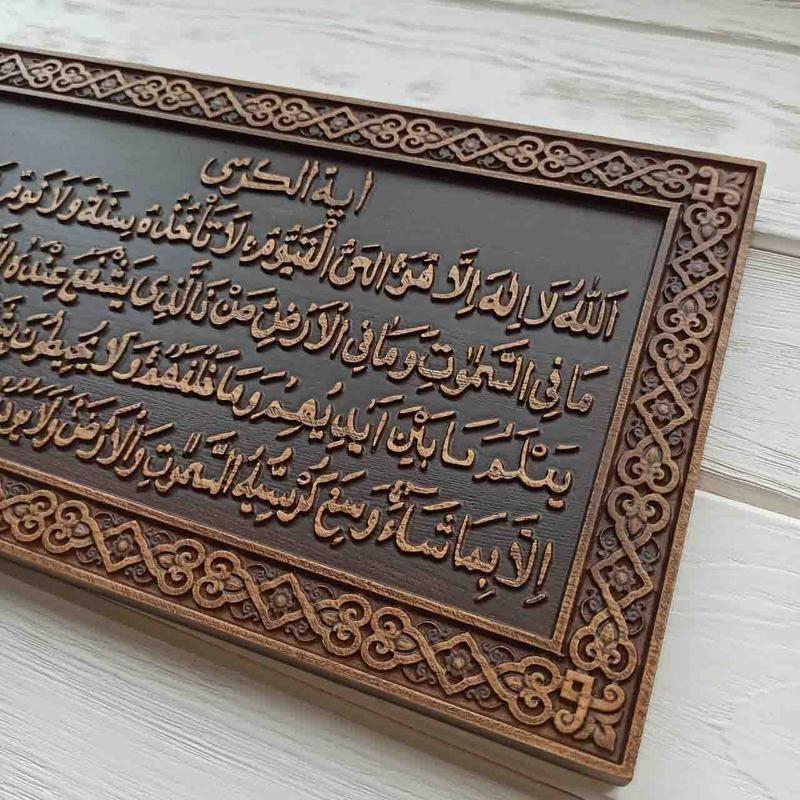 اية الكرسى
اَللّٰهُ لَا اِلٰهَ اِلَّا هُوَ اَلْحَىُّ الْقَيُّومُ لَا تَأْخُذُهُ سِنَةٌ وَلَا نَوْمٌ
مَا فِى السَّمٰوَاتِ وَمَا فِى الْاَرْضِ مَنْ ذَا الَّذِى يَشْفَعُ عِنْدَهُ
يَعْلَمُ مَا بَيْنَ اَيْدِيهِمْ وَمَا خَلْفَهُمْ وَلَا يُحِيطُونَ
اِلَّا بِمَا شَاءَ وَسِعَ كُرْسِيُّهُ السَّمٰوَاتِ وَالْاَرْضَ وَلَا